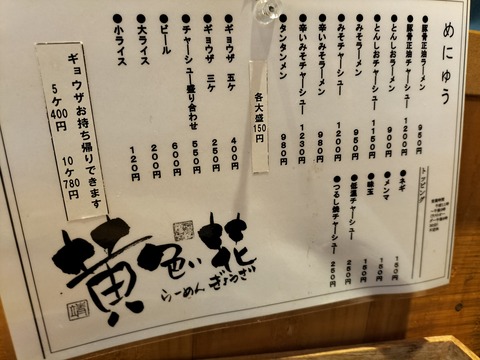 めにゅう
●豚骨正油ラーメン 950円
●豚骨正油チャーシュー 1200円
●とんしおラーメン 900円
●とんしおチャーシュー 1150円
●みそラーメン 950円
●みそチャーシュー 1200円
●辛いみそラーメン 980円
●辛いみそチャーシュー 1230円
●タンタンメン 980円
各大盛150円
トッピング
●ネギ 150円
●メンマ 150円
●味玉 150円
●低温チャーシュー 250円
●つるし焼チャーシュー 250円
●ギョウザ 五ケ 400円
●ギョウザ 三ケ 250円
●チャーシュー盛り合わせ 550円
●ビール 600円
●大ライス 200円
●小ライス 120円
ギョウザお持ち帰りできます
5ケ400円 10ケ780円
黄色い花
らーめん ぎょうざ